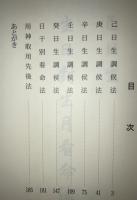 目次
己日生調候法 3
庚日生調候法 41
辛日生調候法 75
壬日生調候法 109
癸日生調候法 147
日干別看命法 181
用神取用先後法 185
あとがき